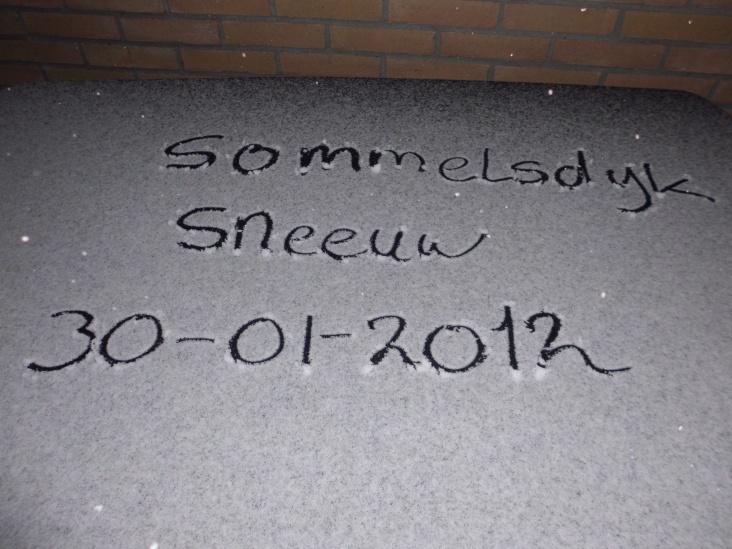 Sommelsdyk
Sneeuw
30-01-2012